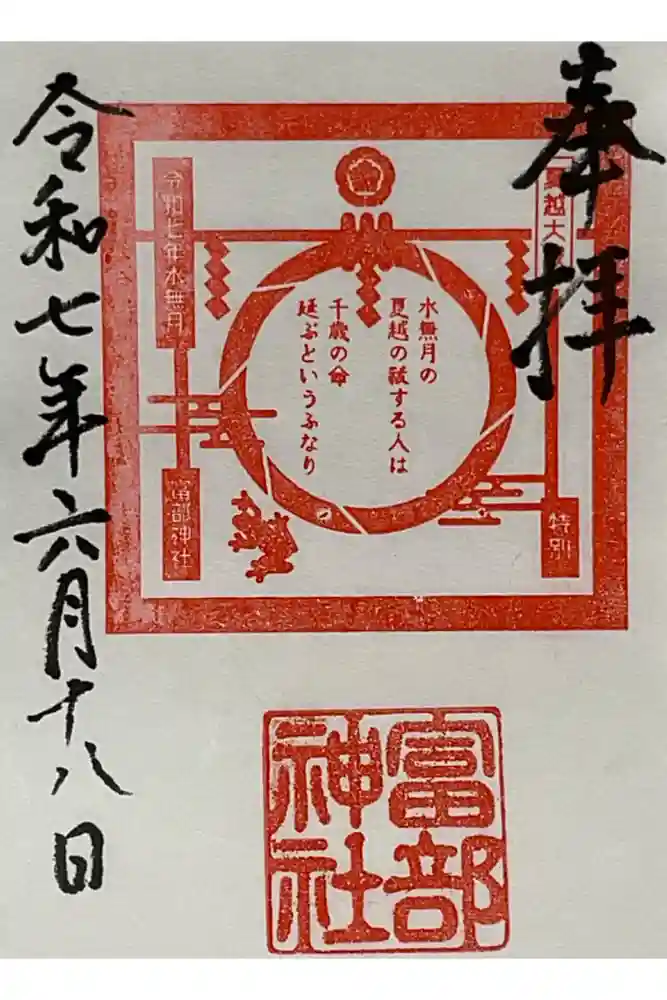 奉拝
夏越大
水無月の
夏越の祓する人は
千歳の命
延ぶというふなり
特別
令和七年水無月
富部神社
富部
神社
令和七年六月十八日